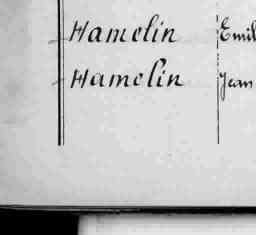 Hamelin Emil
Hamelin Jean